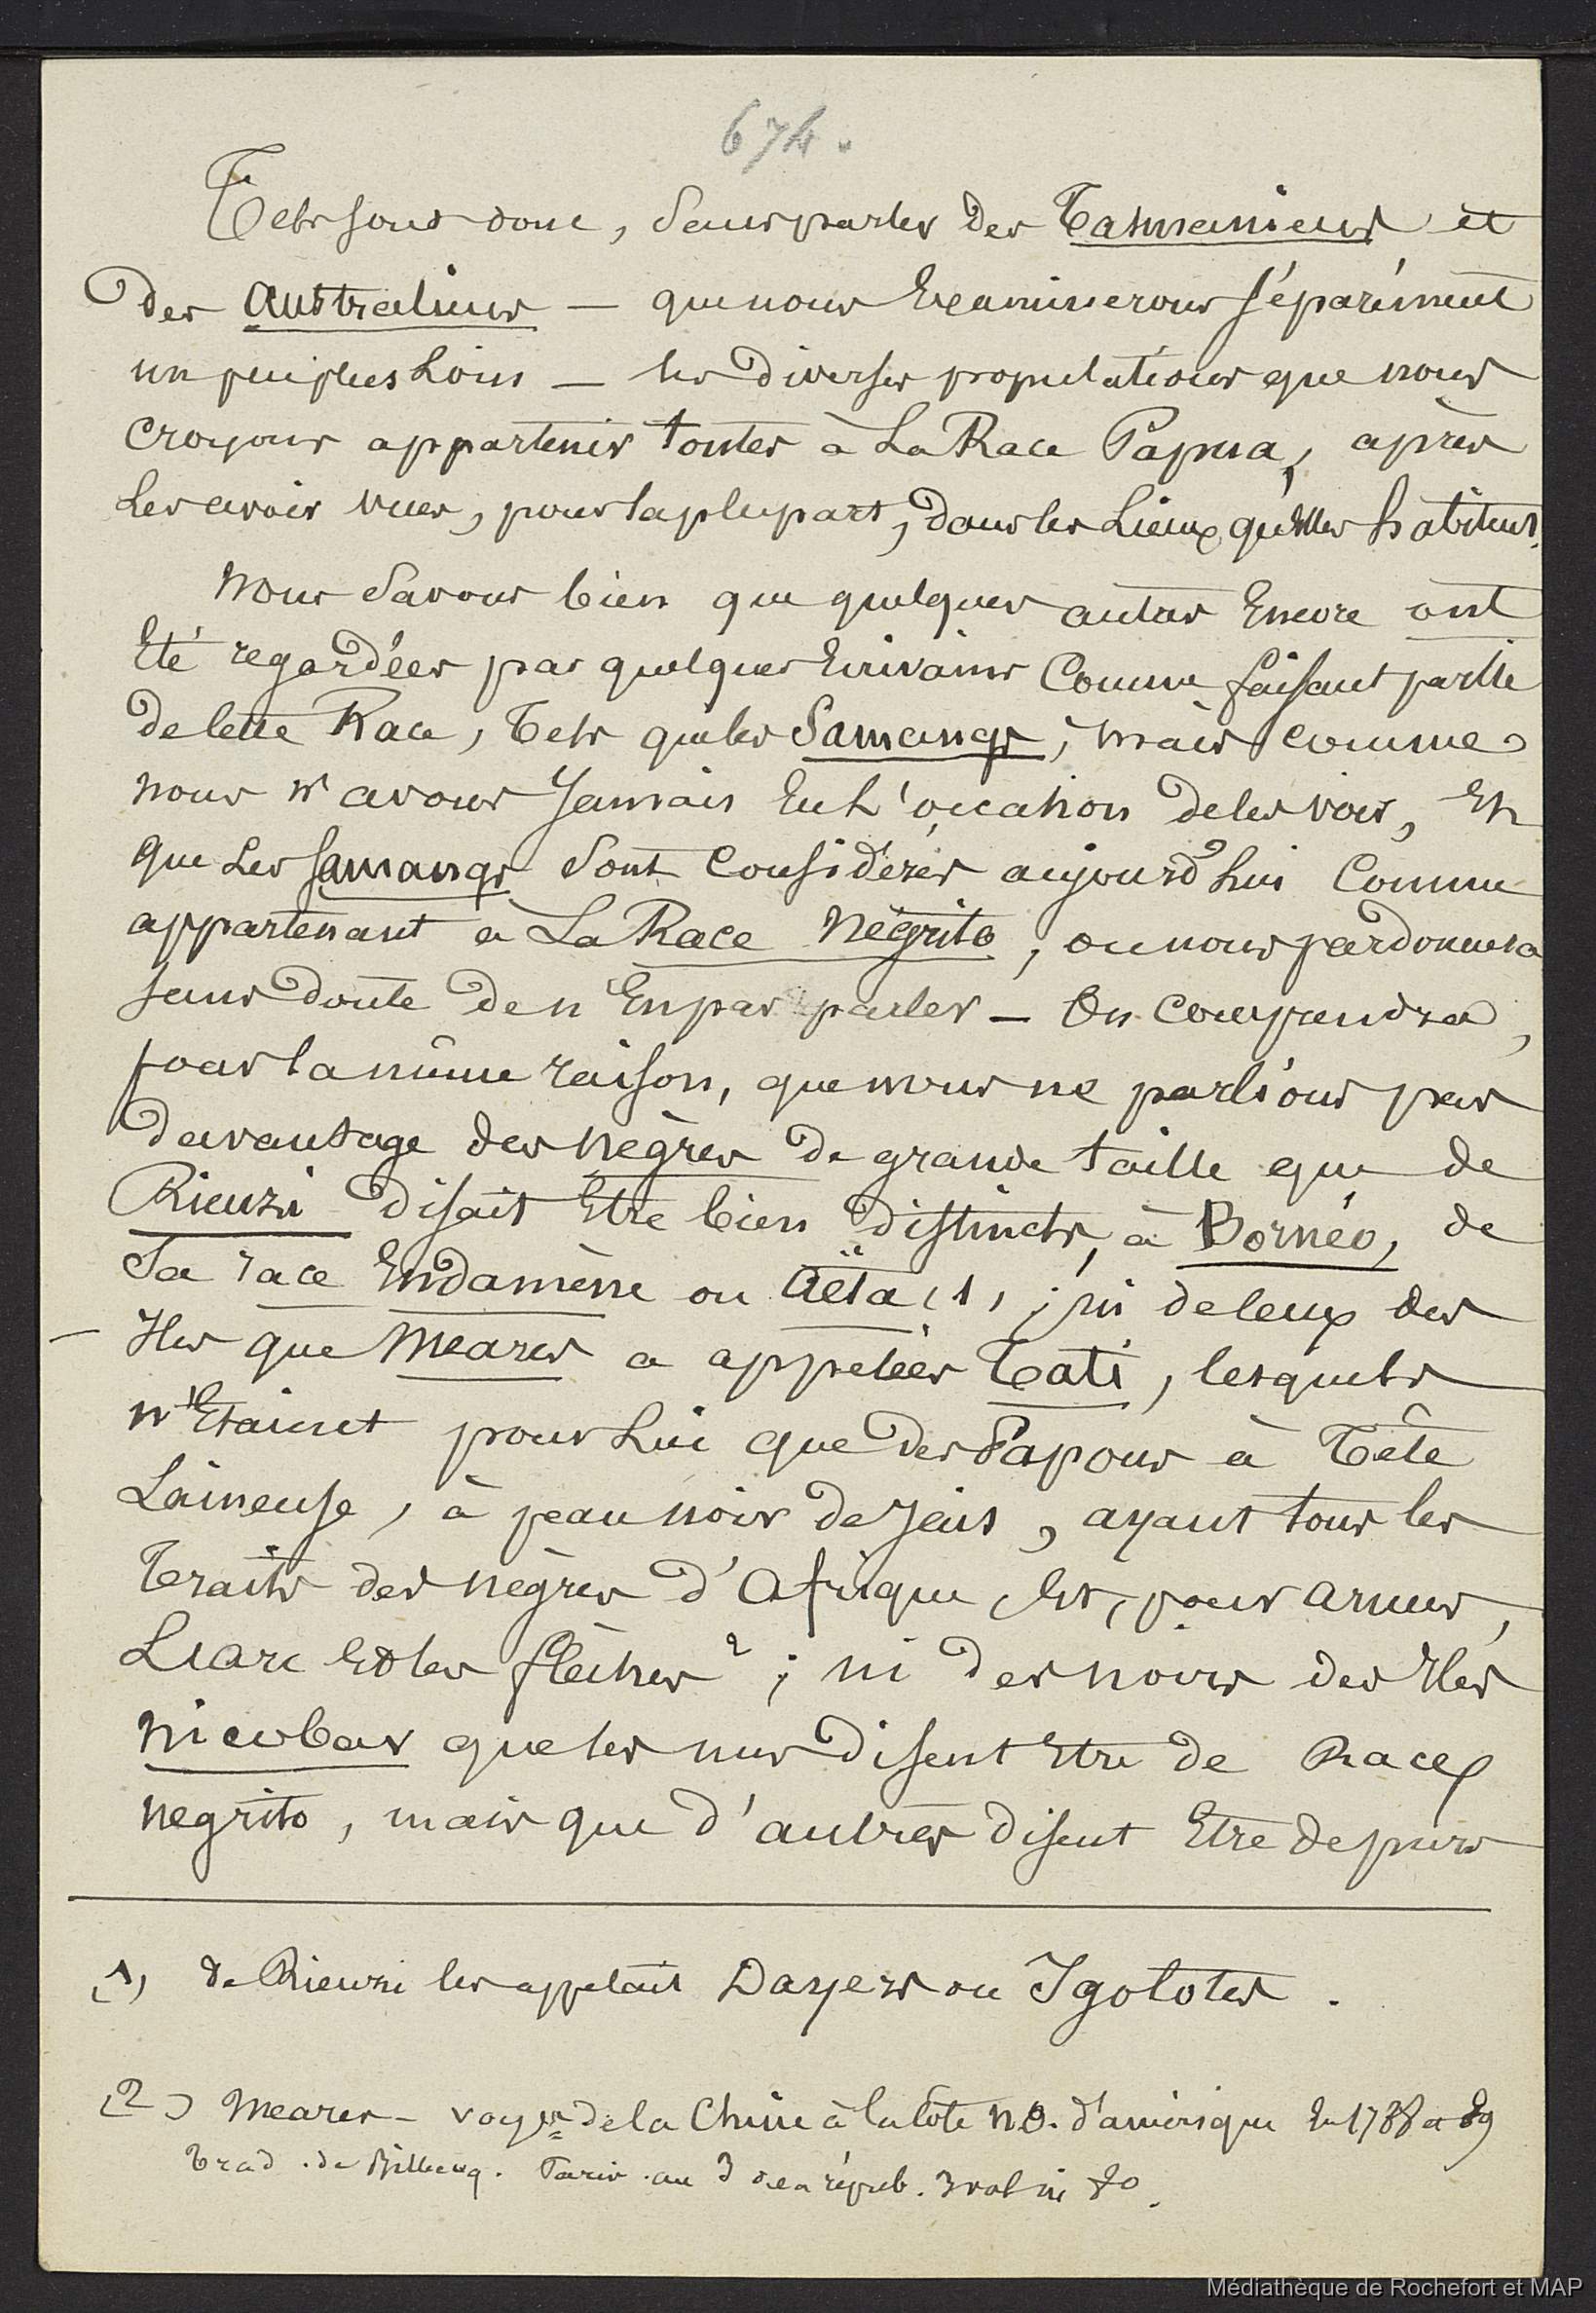 674.
Tels sont donc, sans parler des Tasmaniens et
des Australiens — que nous Examinerons séparément
un peu plus Loin — les diverses populations que nous
croyons appartenir toutes à La Race Papua, après
Les avoir vues, pour la plupart, dans les Lieux qu'elles habitent.
Nous Savons bien que quelques autres Encore ont
Eté regardées par quelques Ecrivains Comme faisant partie
de cette Race, Tels que les Samangs ; mais comme
nous n'avons Jamais Eu L'occasion de les voir, Et
que Les Samangs Sont Considérés aujourd'hui Comme
appartenant à La Race Négrito, on nous pardonnera
sans doute de n'En pas parler — On comprendra,
pour la même raison, que nous ne parlions pas
davantage des nègres de grande taille que de
Rienzi disait Etre bien distincts, à Bornéo, de
Sa race Endamène ou Aëta (1) ; ni de ceux des
— Iles que Meares a appelées Tati, lesquels
n'Etaient pour Lui que des Papous à Tête
Laineuse, à peau noir de Jais, ayant tous les
Traits des nègres d'Afrique Et, pour armes,
L'arc Et les flèches 2 ; ni des noirs des Iles
Nicobar que les uns disent Etre de Race
negrito, mais que d'autres disent Etre de purs
(1) de Rienzi les appelait Dayers ou Igolotes.
(2) Meares — voyes de la Chine à la Côte N.O. d'amérique En 1788 et 89
Trad. de Billecoq. Paris. an 3 de la répub. 3 vol in 8o.
Médiathèque de Rochefort et MAP